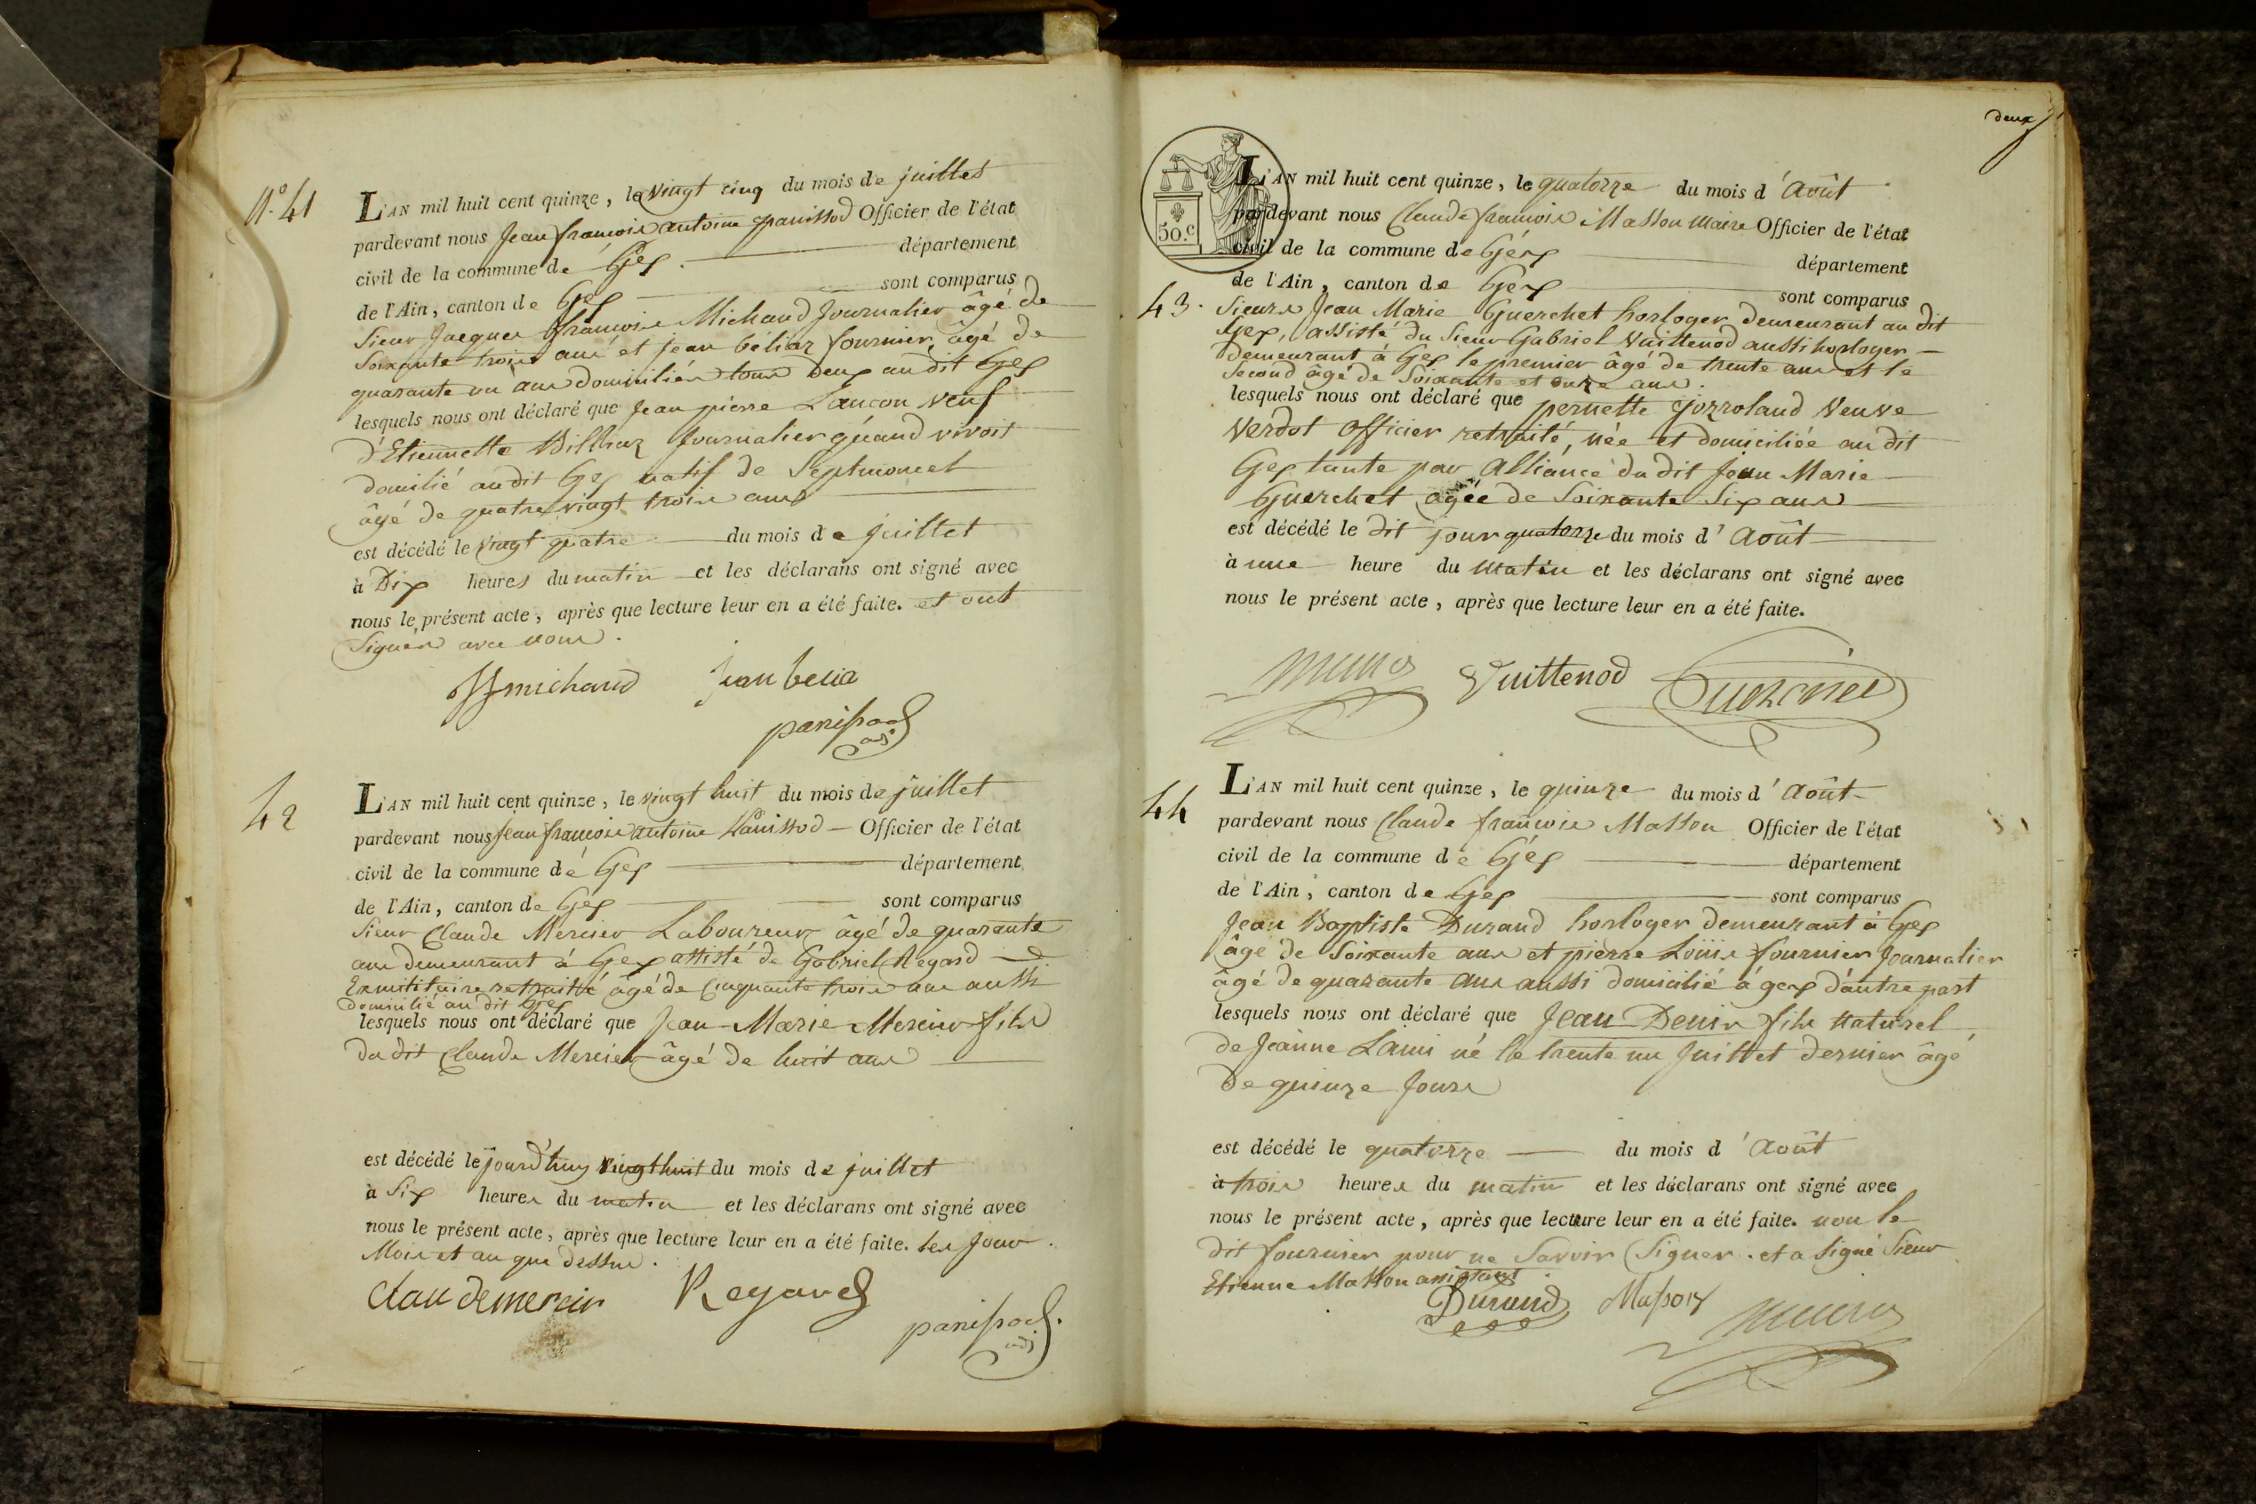 N.° 41
L'AN mil huit cent quinze, le vingt cinq du mois de juillet
pardevant nous Jean françois antoine panissod Officier de l'état
civil de la commune de Gex département
de l'Ain, canton de Gex sont comparus
Sieur Jacques françois Michaud Journalier âgé de
Soixante trois ans et jean béliaz fournier, âgé de
quarante un ans domiciliés tous deux audit Gex
lesquels nous ont déclaré que Jean pierre Lancon veuf
d'Etiennette Billiaz Journalier quand vivoit
domilié audit Gex natif de Septmoncel
âgé de quatre vingt trois ans
est décédé le vingt quatre du mois de Juillet
à Dix heures du matin et les déclarans ont signé avec
nous le présent acte, après que lecture leur en a été faite. et ont
Signés avec nous.
michaud Jean belia
panissod
adj.
42
L'AN mil huit cent quinze, le vingt huit du mois de juillet
pardevant nous Jean françois antoine Panissod Officier de l'état
civil de la commune de Gex département
de l'Ain, canton de Gex sont comparus
Sieur Claude Mercier Laboureur âgé de quarante
ans demeurant à Gex assisté de Gabriel Regard
Exmilitaire retraité âgé de Cinquante trois ans aussi
domicilié au dit Gex
lesquels nous ont déclaré que Jean-Marie Mercier fils
du dit Claude Mercier âgé de huit ans
est décédé le jourd'huy vingt huit du mois de juillet
à Six heures du matin et les déclarans ont signé avec
nous le présent acte, après que lecture leur en a été faite. les Jour
Mois et an que dessus.
Claude mercier Regard
panissod
adj.
deux
50.c
L'AN mil huit cent quinze, le quatorze du mois d'Août
pardevant nous Claude françois Masson Maire Officier de l'état
civil de la commune de Géx département
de l'Ain, canton de Géx sont comparus
43. Sieurs Jean Marie Guerchet horloger demeurant au dit
Gex, assisté du Sieur Gabriel Vuittenod aussi horloger
demeurant à Gex le premier âgé de trente ans et le
second âgé de Soixante et onze ans.
lesquels nous ont déclaré que pernette Jozroland Veuve
Verdot officier retraité, née et domiciliée au dit
Gex tante par Alliance du dit Jean Marie
Guerchet agée de Soixante Six ans
est décédé le dit jour quatorze du mois d'Août
à une heure du matin et les déclarans ont signé avec
nous le présent acte, après que lecture leur en a été faite.
Vuittenod Guerchet
44
L'AN mil huit cent quinze, le quinze du mois d'Août
pardevant nous Claude françois Masson Officier de l'état
civil de la commune de Géx département
de l'Ain, canton de Gex sont comparus
Jean Baptiste Durand horloger demeurant à Gex
âgé de Soixante ans et pierre Loüis fournier Journalier
âgé de quarante ans aussi domicilié à gex d'autre part
lesquels nous ont déclaré que Jean Denis fils naturel
de Jeanne Lami né le trente un Juillet dernier âgé
de quinze Jours
est décédé le quatorze du mois d'Août
à trois heures du matin et les déclarans ont signé avec
nous le présent acte, après que lecture leur en a été faite. non le
dit fournier pour ne Savoir Signer. et a signé Sieur
Etienne Masson assistant
Durand Masson